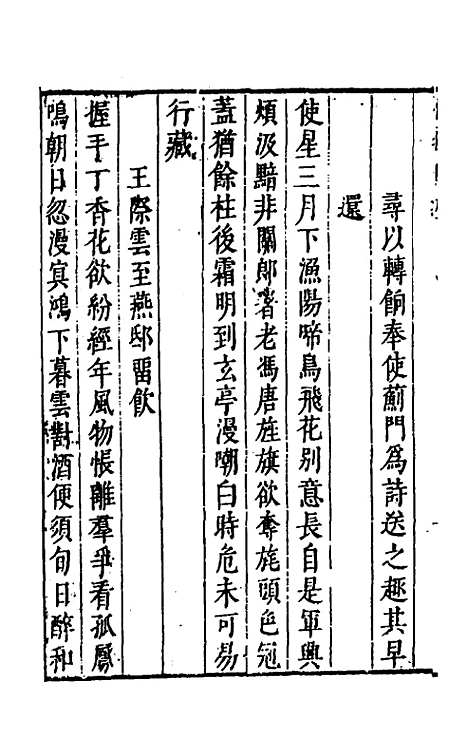 尋以轉餉奉使薊門為詩送之趣其早
還
使星三月下漁陽啼鳥飛花别意長自是軍興
煩汲黯非關郎署老馮唐旌旗欲奪旄頭色冠
蓋猶餘柱後霜明到玄亭漫嘲白時危未可易
行藏
王際雲至燕邸留飲
握手丁香花欲紛經年風物悵離羣爭看孤鳳
鳴朝日忽漫冥鴻下暮雲對酒便須旬日醉和